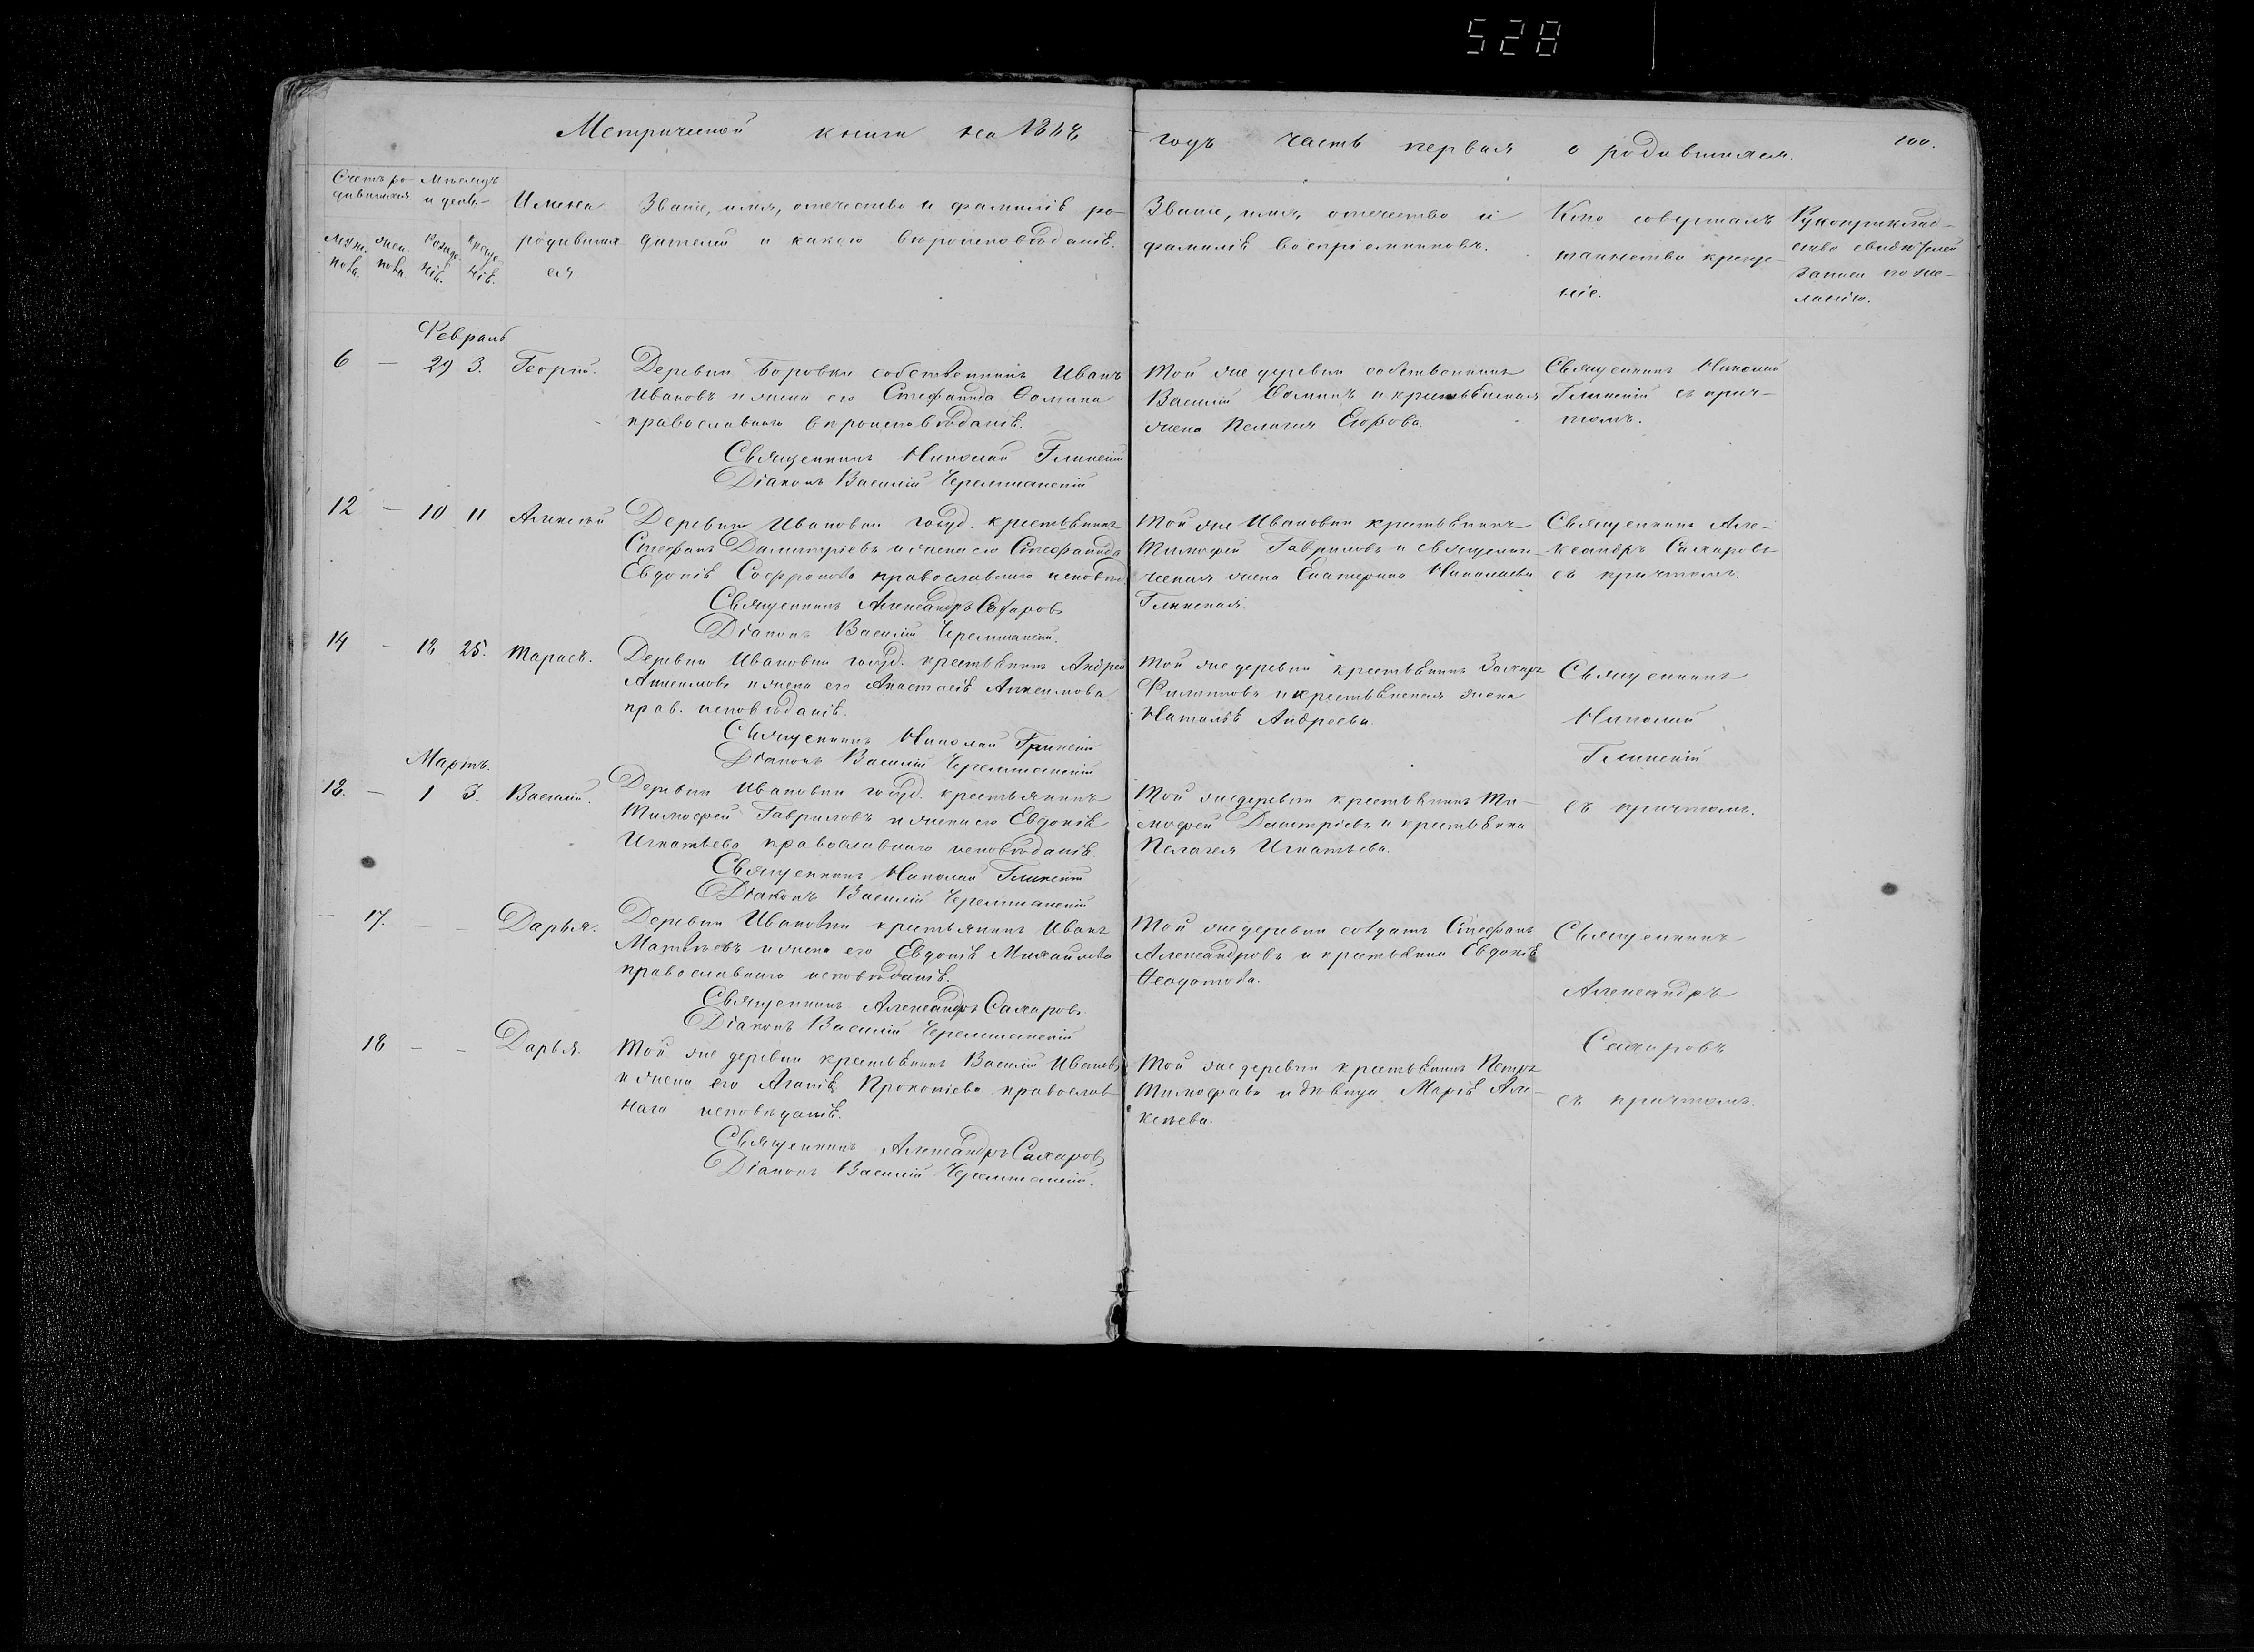 528
Метрической книги на 1868
годъ часть первая о родившихся. 100.
Счетъ ро- Мѣсяцъ
дившихся и день
Имена
родивших
ся
муже. женс. рожде крещ.
ска. ска. нія. нія.
Званіе, имя, отечество и фамилія ро-
дителей и какого вѣроисповѣданія.
Званіе, имя, отечество и
фамилія воспріемниковъ.
Кто совершалъ
таинство креще-
ніе.
Рукоприклад-
ство свидѣтелей
записи по же-
ланію.
Февраль
6 — 29 3. Георгій.
Деревни Боровки собственникъ Иванъ
Ивановъ и жена его Стефанида Ѳомина
православнаго вѣроисповѣданія.
Священникъ Николай Глинскій
Діаконъ Василій Черемшанскій
Той же деревни собственникъ
Василій Ѳоминъ и крестьянская
жена Пелагея Егорова.
Священникъ Николай
Глинскій съ прич-
томъ.
12 — 10 11 Алексѣй
Деревни Ивановки госуд. крестьянинъ
Стефанъ Димитріевъ и жена его Стефанида
Евдокія Софронова православнаго исповѣд.
Священникъ Александръ Сахаровъ
Діаконъ Василій Черемшанскій.
Той же Ивановки крестьянинъ
Тимофей Гавриловъ и священни-
ческая жена Екатерина Николаева
Глинская.
Священникъ Але-
ксандръ Сахаровъ
съ причтомъ.
14 — 18 25. Тарасъ.
Деревни Ивановки госуд. крестьянинъ Андрей
Анисимовъ и жена его Анастасія Анисимова
прав. исповѣданія.
Священникъ Николай Глинскій
Діаконъ Василій Черемшанскій
Той же деревни крестьянинъ Захаръ
Филиповъ и крестьянская жена
Наталья Андреева.
Священникъ
Николай
Глинскій
съ причтомъ.
Мартъ.
18. — 1 3. Василій.
Деревни Ивановки госуд. крестьянинъ
Тимофей Гавриловъ и жена его Евдокія
Игнатьева православнаго исповѣданія.
Священникъ Николай Глинскій
Діаконъ Василій Черемшанскій
Той же деревни крестьянинъ Ти-
мофей Дмитріевъ и крестьянка
Пелагея Игнатьева.
— 17. — — Дарья.
Деревни Ивановки крестьянинъ Иванъ
Матвѣевъ и жена его Евдокія Михайлова
православнаго исповѣданія.
Священникъ Александръ Сахаровъ.
Діаконъ Василій Черемшанскій
Той же деревни солдатъ Стефанъ
Александровъ и крестьянка Евдокія
Ѳеодотова.
Священникъ
Александръ
Сахаровъ
съ причтомъ.
18 — — Дарья.
Той же деревни крестьянинъ Василій Ивановъ
и жена его Агапія Прокопіева православ-
наго исповѣданія.
Священникъ Александръ Сахаровъ
Діаконъ Василій Черемшанскій.
Той же деревни крестьянинъ Петръ
Тимофеевъ и дѣвица Марія Але-
ксѣева.